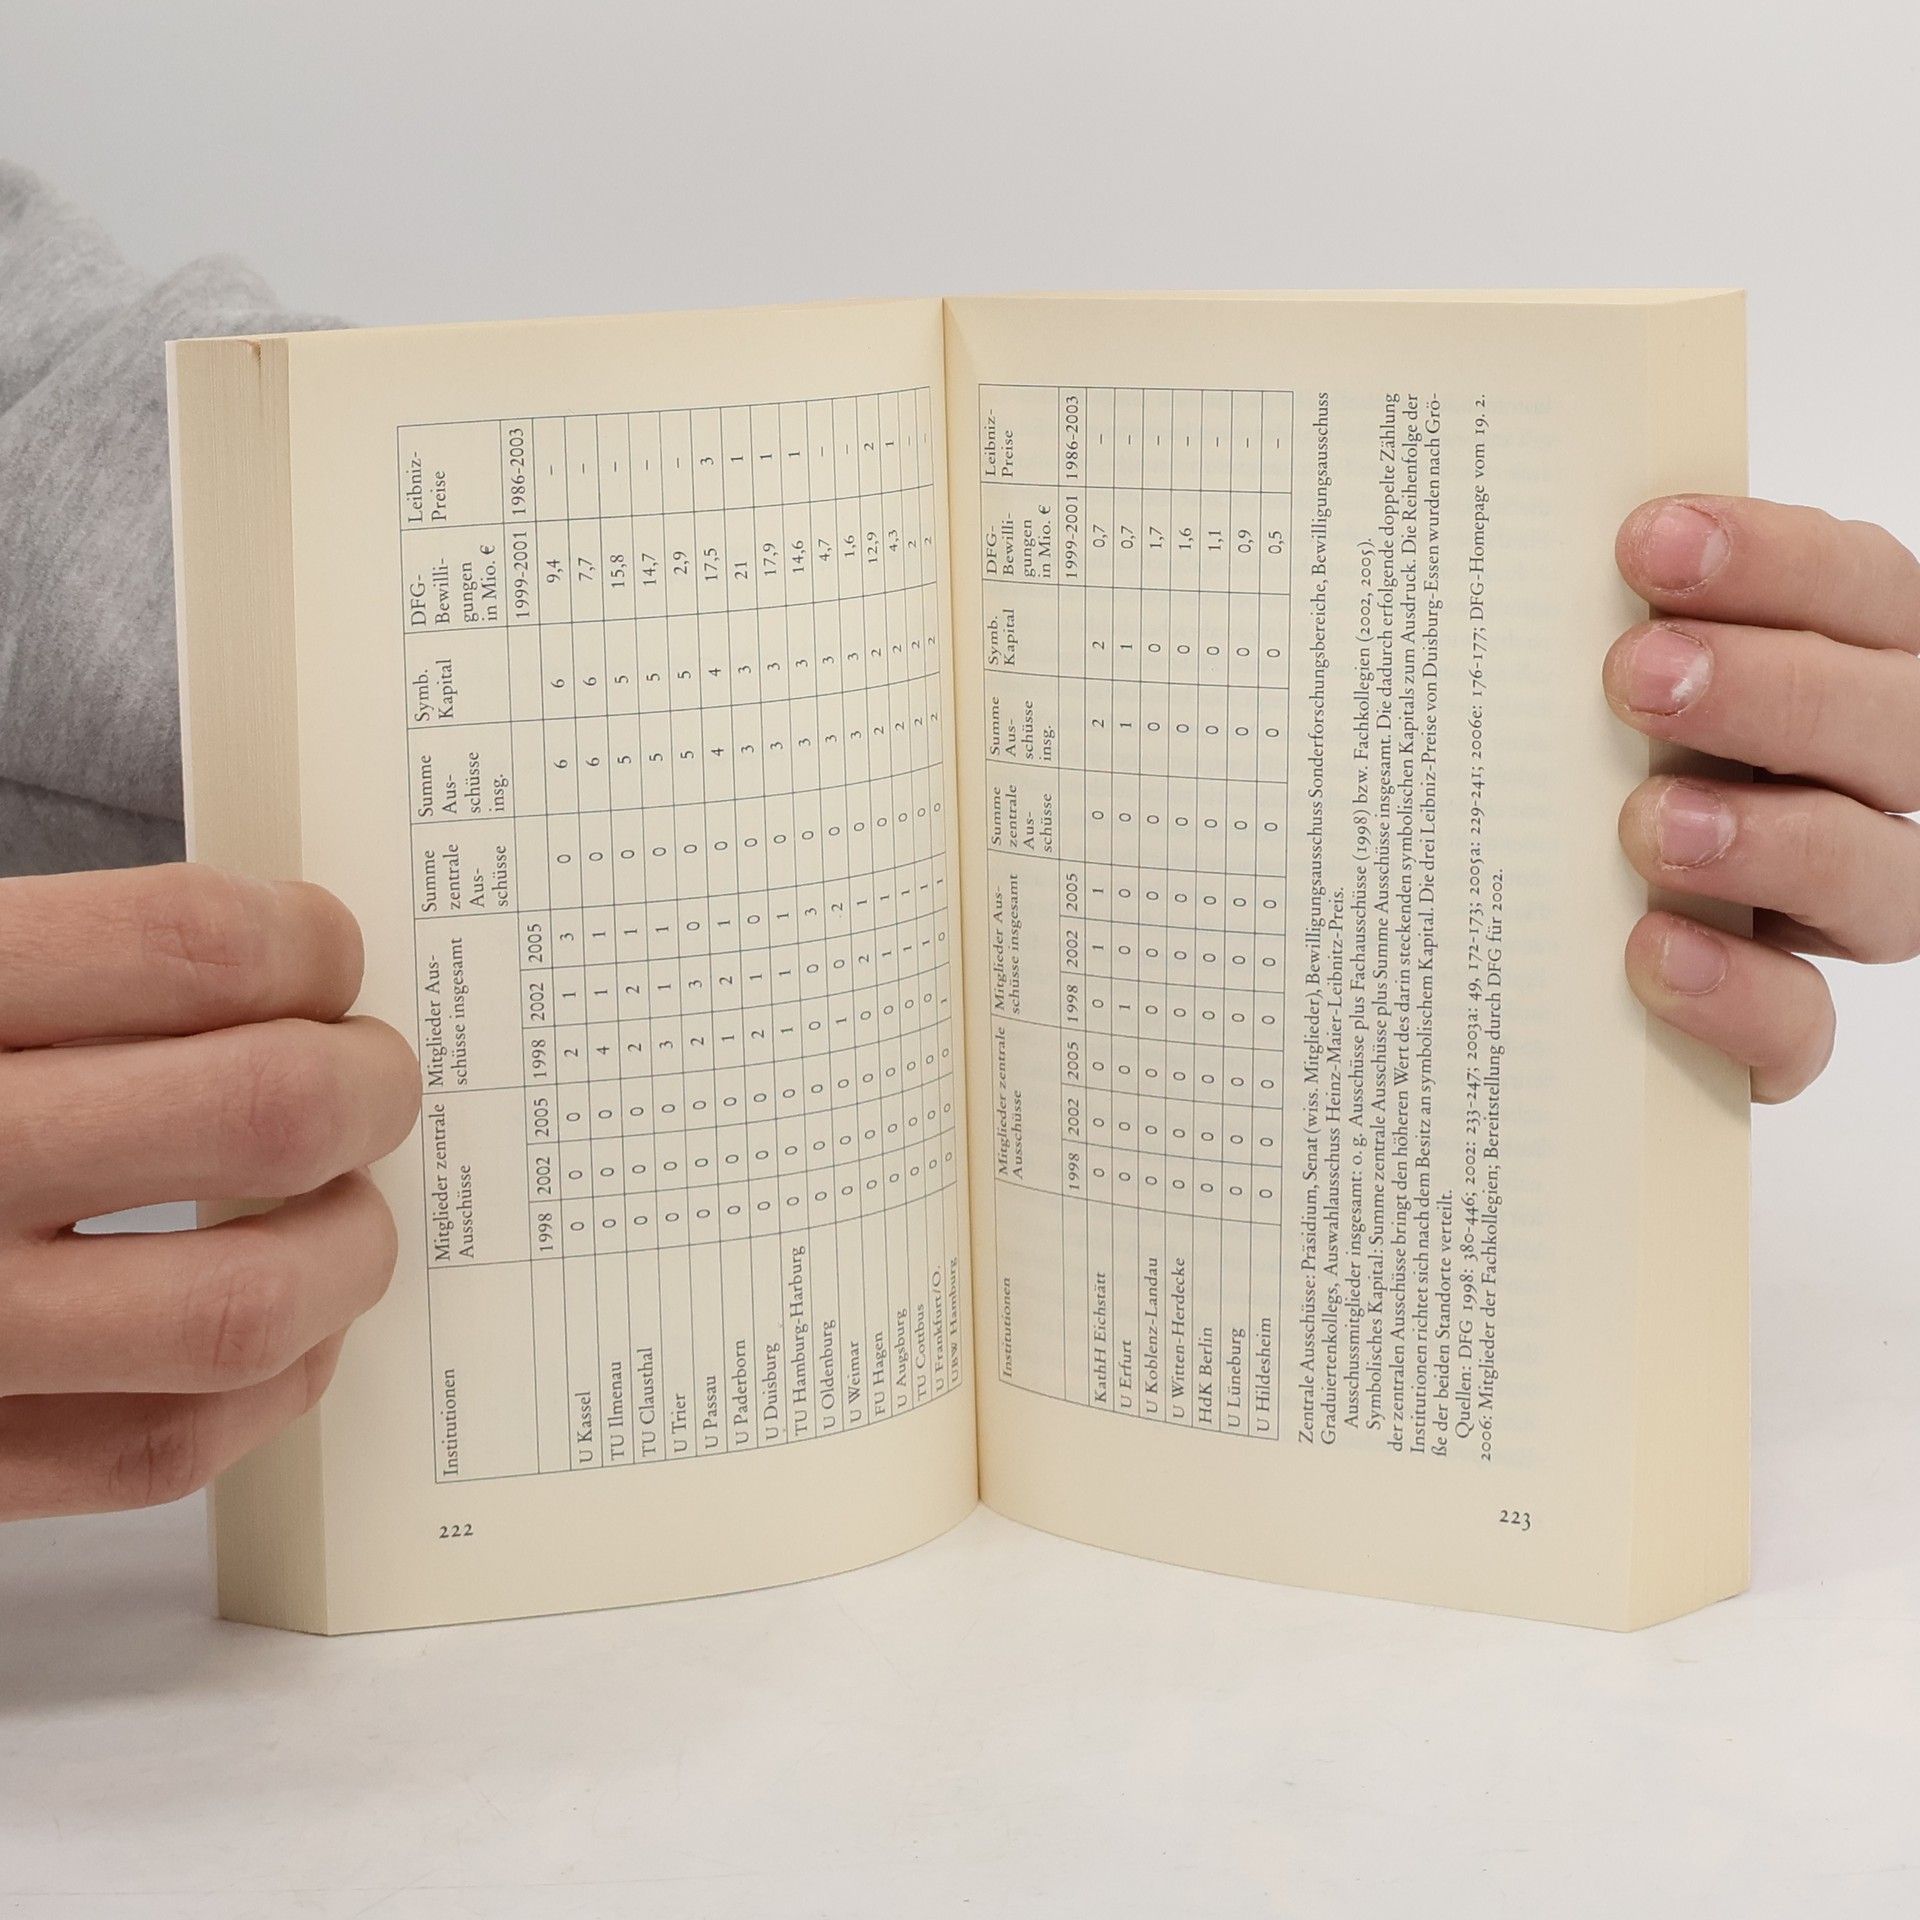 Institutionen Mitglieder zentrale Ausschüsse Mitglieder Aus-schüsse insgesamt Summe zentrale Aus-schüsse Summe Aus-schüsse insg. Symb. Kapital DFG-Bewilli-gungen in Mio. € Leibniz-Preise
1998 2002 2005 1998 2002 2005 1999-2001 1986-2003
U Kassel 0 0 0 2 1 3 0 6 6 9,4 –
TU Ilmenau 0 0 0 4 1 1 0 6 6 7,7 –
TU Clausthal 0 0 0 2 2 1 0 5 5 15,8 –
U Trier 0 0 0 3 1 1 0 5 5 14,7 –
U Passau 0 0 0 2 3 0 0 5 5 2,9 –
U Paderborn 0 0 0 1 2 1 0 4 4 17,5 3
U Duisburg 0 0 0 2 1 0 0 3 3 21 1
TU Hamburg-Harburg 0 0 0 1 1 1 0 3 3 17,9 1
U Oldenburg 0 0 0 0 0 3 0 3 3 14,6 1
U Weimar 0 0 0 1 0 2 0 3 3 4,7 –
FU Hagen 0 0 0 0 2 1 0 3 3 1,6 –
U Augsburg 0 0 0 0 1 1 0 2 2 12,9 2
TU Cottbus 0 0 0 0 1 1 0 2 2 4,3 1
U Frankfurt/O. 0 0 0 0 1 1 0 2 2 2 –
UBW Hamburg 0 0 0 1 0 1 0 2 2 2 –
222
Institutionen Mitglieder zentrale Ausschüsse Mitglieder Aus-schüsse insgesamt Summe zentrale Aus-schüsse Summe Aus-schüsse insg. Symb. Kapital DFG-Bewilli-gungen in Mio. € Leibniz-Preise
1998 2002 2005 1998 2002 2005 1999-2001 1986-2003
KathH Eichstätt 0 0 0 0 1 1 0 2 2 0,7 –
U Erfurt 0 0 0 1 0 0 0 1 1 0,7 –
U Koblenz-Landau 0 0 0 0 0 0 0 0 0 1,7 –
U Witten-Herdecke 0 0 0 0 0 0 0 0 0 1,6 –
HdK Berlin 0 0 0 0 0 0 0 0 0 1,1 –
U Lüneburg 0 0 0 0 0 0 0 0 0 0,9 –
U Hildesheim 0 0 0 0 0 0 0 0 0 0,5 –
Zentrale Ausschüsse: Präsidium, Senat (wiss. Mitglieder), Bewilligungsausschuss Sonderforschungsbereiche, Bewilligungsausschuss
Graduiertenkollegs, Auswahlausschuss Heinz-Maier-Leibnitz-Preis.
Ausschussmitglieder insgesamt: o. g. Ausschüsse plus Fachausschüsse (1998) bzw. Fachkollegien (2002, 2005).
Symbolisches Kapital: Summe zentrale Ausschüsse plus Summe Ausschüsse insgesamt. Die dadurch erfolgende doppelte Zählung
der zentralen Ausschüsse bringt den höheren Wert des darin steckenden symbolischen Kapitals zum Ausdruck. Die Reihenfolge der
Institutionen richtet sich nach dem Besitz an symbolischem Kapital. Die drei Leibniz-Preise von Duisburg-Essen wurden nach Grö-
ße der beiden Standorte verteilt.
Quellen: DFG 1998: 380-446; 2002: 233-247; 2003a: 49, 172-173; 2005a: 229-241; 2006e: 176-177; DFG-Homepage vom 19. 2.
2006: Mitglieder der Fachkollegien; Bereitstellung durch DFG für 2002.
223